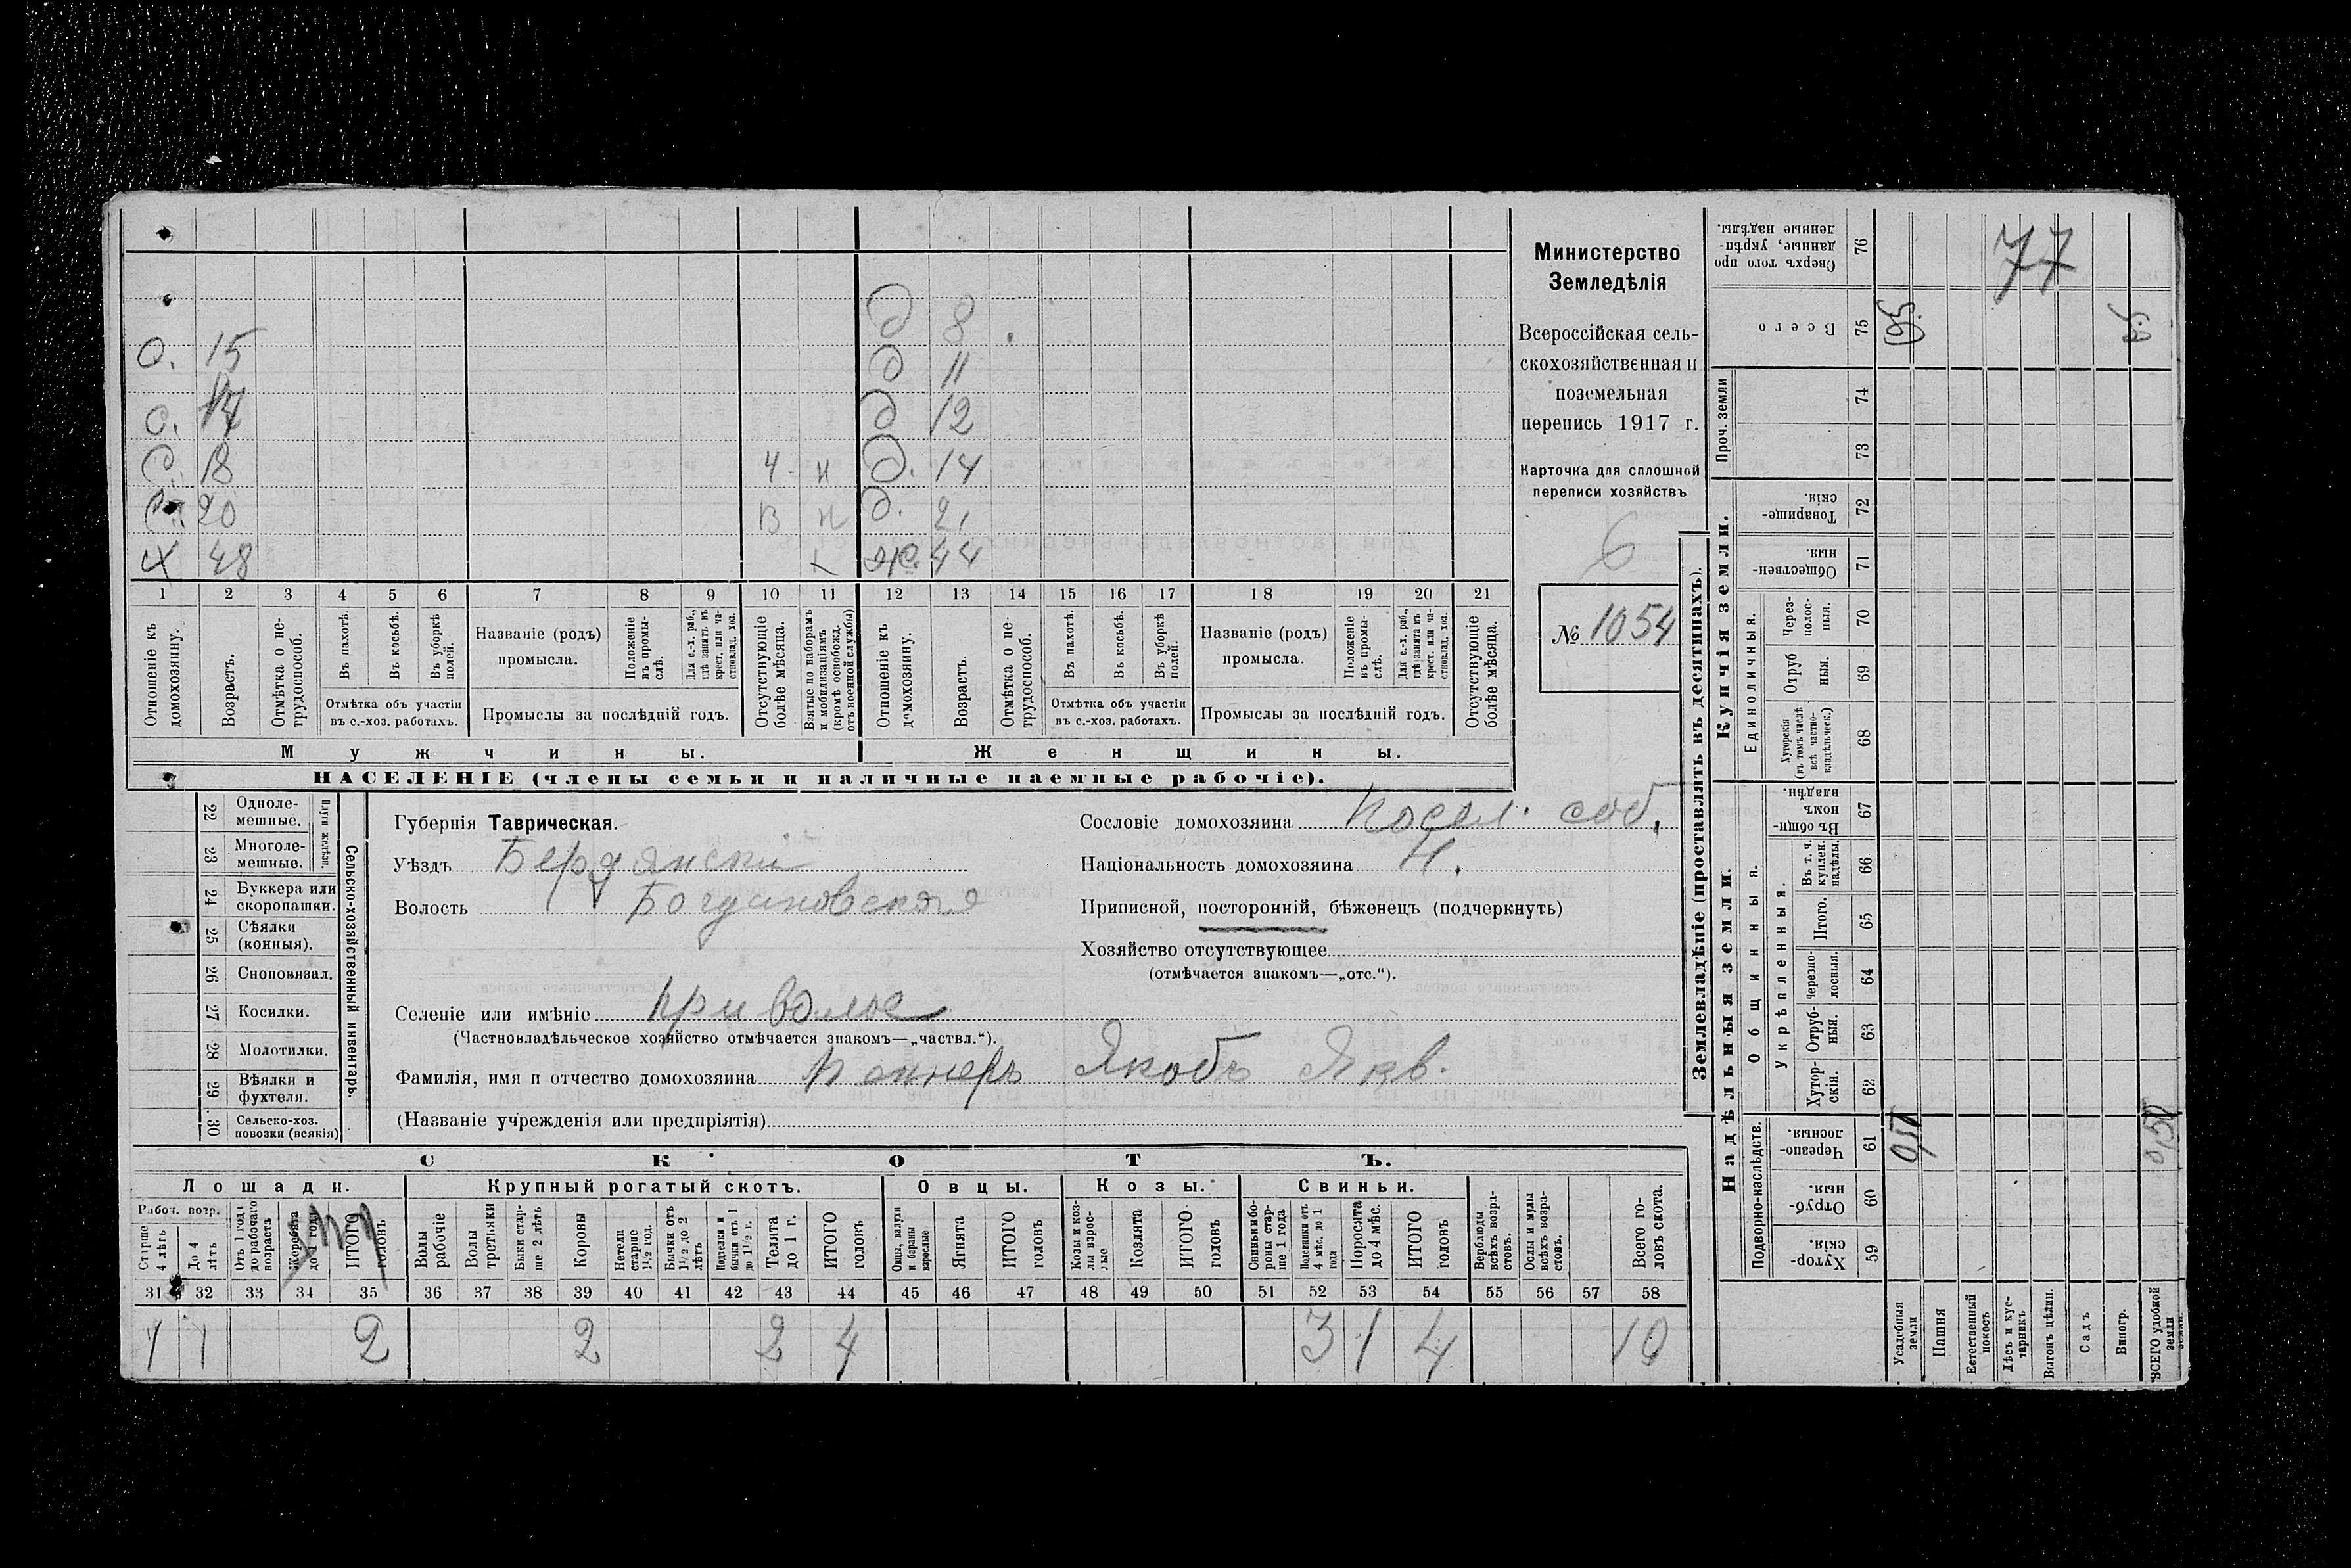 О. 15
С. 17
С. 18 Ч Н
С. 20 В Н
Х 48
д 8
д 11
д 12
д. 14
д. 21
ж. 44
1 2 3 4 5 6 7 8 9 10 11 12 13 14 15 16 17 18 19 20 21
Отношеніе къ домохозяину.
Возрастъ.
Отмѣтка о нетрудоспособ.
Въ пахотѣ.
Въ косьбѣ.
Въ уборкѣ полей.
Отмѣтка объ участіи
въ с.-хоз. работахъ.
Названіе (родъ)
промысла.
Положеніе въ промыслѣ.
Для с.-х. раб., гдѣ занятъ въ крест. или частновлад. хоз.
Промыслы за послѣдній годъ.
Отсутствующіе болѣе мѣсяца.
Взятые по наборамъ и мобилизаціямъ (кромѣ освобожд. отъ военной службы)
Отношеніе къ домохозяину.
Возрастъ.
Отмѣтка о нетрудоспособ.
Въ пахотѣ.
Въ косьбѣ.
Въ уборкѣ полей.
Отмѣтка объ участіи
въ с.-хоз. работахъ.
Названіе (родъ)
промысла.
Положеніе въ промыслѣ.
Для с.-х. раб., гдѣ занята въ крест. или частновлад. хоз.
Промыслы за послѣдній годъ.
Отсутствующіе болѣе мѣсяца.
Мужчины. Женщины.
НАСЕЛЕНІЕ (члены семьи и наличные наемные рабочіе).
Министерство
Земледѣлія
Всероссійская сель-
скохозяйственная и
поземельная
перепись 1917 г.
Карточка для сплошной
переписи хозяйствъ
6
№ 1054
22 Одноле-
мешные.
23 Многоле-
мешные.
Плуги желѣзн.
24 Буккера или
скоропашки.
25 Сѣялки
(конныя).
26 Сноповязал.
27 Косилки.
28 Молотилки.
29 Вѣялки и
фухтеля.
30 Сельско-хоз.
повозки (всякія)
Сельско-хозяйственный инвентарь.
Губернія Таврическая.
Уѣздъ Бердянскій
Волость Богдановская
Селеніе или имѣніе Привольное
(Частновладѣльческое хозяйство отмѣчается знакомъ—„частвл.“).
Фамилія, имя и отчество домохозяина Пеннеръ Якобъ Якв.
(Названіе учрежденія или предпріятія)
Сословіе домохозяина Посел. соб.
Національность домохозяина Н.
Приписной, посторонній, бѣженецъ (подчеркнуть)
Хозяйство отсутствующее
(отмѣчается знакомъ—„отс.“).
СКОТЪ.
Лошади. Крупный рогатый скотъ. Овцы. Козы. Свиньи.
Рабоч. возр.
Старше 4 лѣтъ
До 4 лѣтъ
Отъ 1 года до рабочаго возраста
Жеребята до 1 года
ИТОГО головъ
Волы рабочіе
Волы третьяки
Быки старше 2 лѣтъ
Коровы
Нетели старше 1½ год.
Бычки отъ 1½ до 2 лѣтъ
Подтелки и бычки отъ 1 до 1½ г.
Телята до 1 г.
ИТОГО головъ
Овцы, валухи и бараны взрослые
Ягнята
ИТОГО головъ
Козы и козлы взрослые
Козлята
ИТОГО головъ
Свиньи и боровы старше 1 года
Подсвинки отъ 4 мѣс. до 1 года
Поросята до 4 мѣс.
ИТОГО головъ
Верблюды всѣхъ возрастовъ.
Ослы и мулы всѣхъ возрастовъ.
Всего головъ скота.
31 32 33 34 35 36 37 38 39 40 41 42 43 44 45 46 47 48 49 50 51 52 53 54 55 56 57 58
1 1 2 2 2 4 3 1 4 10
Землевладѣніе (проставлять въ десятинахъ).
Надѣльныя земли. Купчія земли. Проч. земли
Подворно-наслѣдств.
Общинныя.
Укрѣпленныя.
Единоличныя.
Хуторскія. 59
Отрубныя. 60
Черезполосныя. 61
Хуторскія. 62
Отрубныя. 63
Черезполосныя. 64
Итого. 65
Въ т. ч. куплен. надѣлы. 66
Въ общиномъ владѣн. 67
Хуторскія (въ томъ числѣ всѣ частновладѣльческ.) 68
Отрубныя. 69
Черезполосныя. 70
Общественныя. 71
Товарищескія. 72
73
74
Всего 75
Сверхъ того проданные, укрѣпленные надѣлы. 76
77
0,5
0,5
0,50
0,50
Усадебныя земли
Пашня
Естественный покосъ
Лѣсъ и кустарникъ
Выгонъ цѣлин.
Садъ
Виногр.
ВСЕГО удобной земли